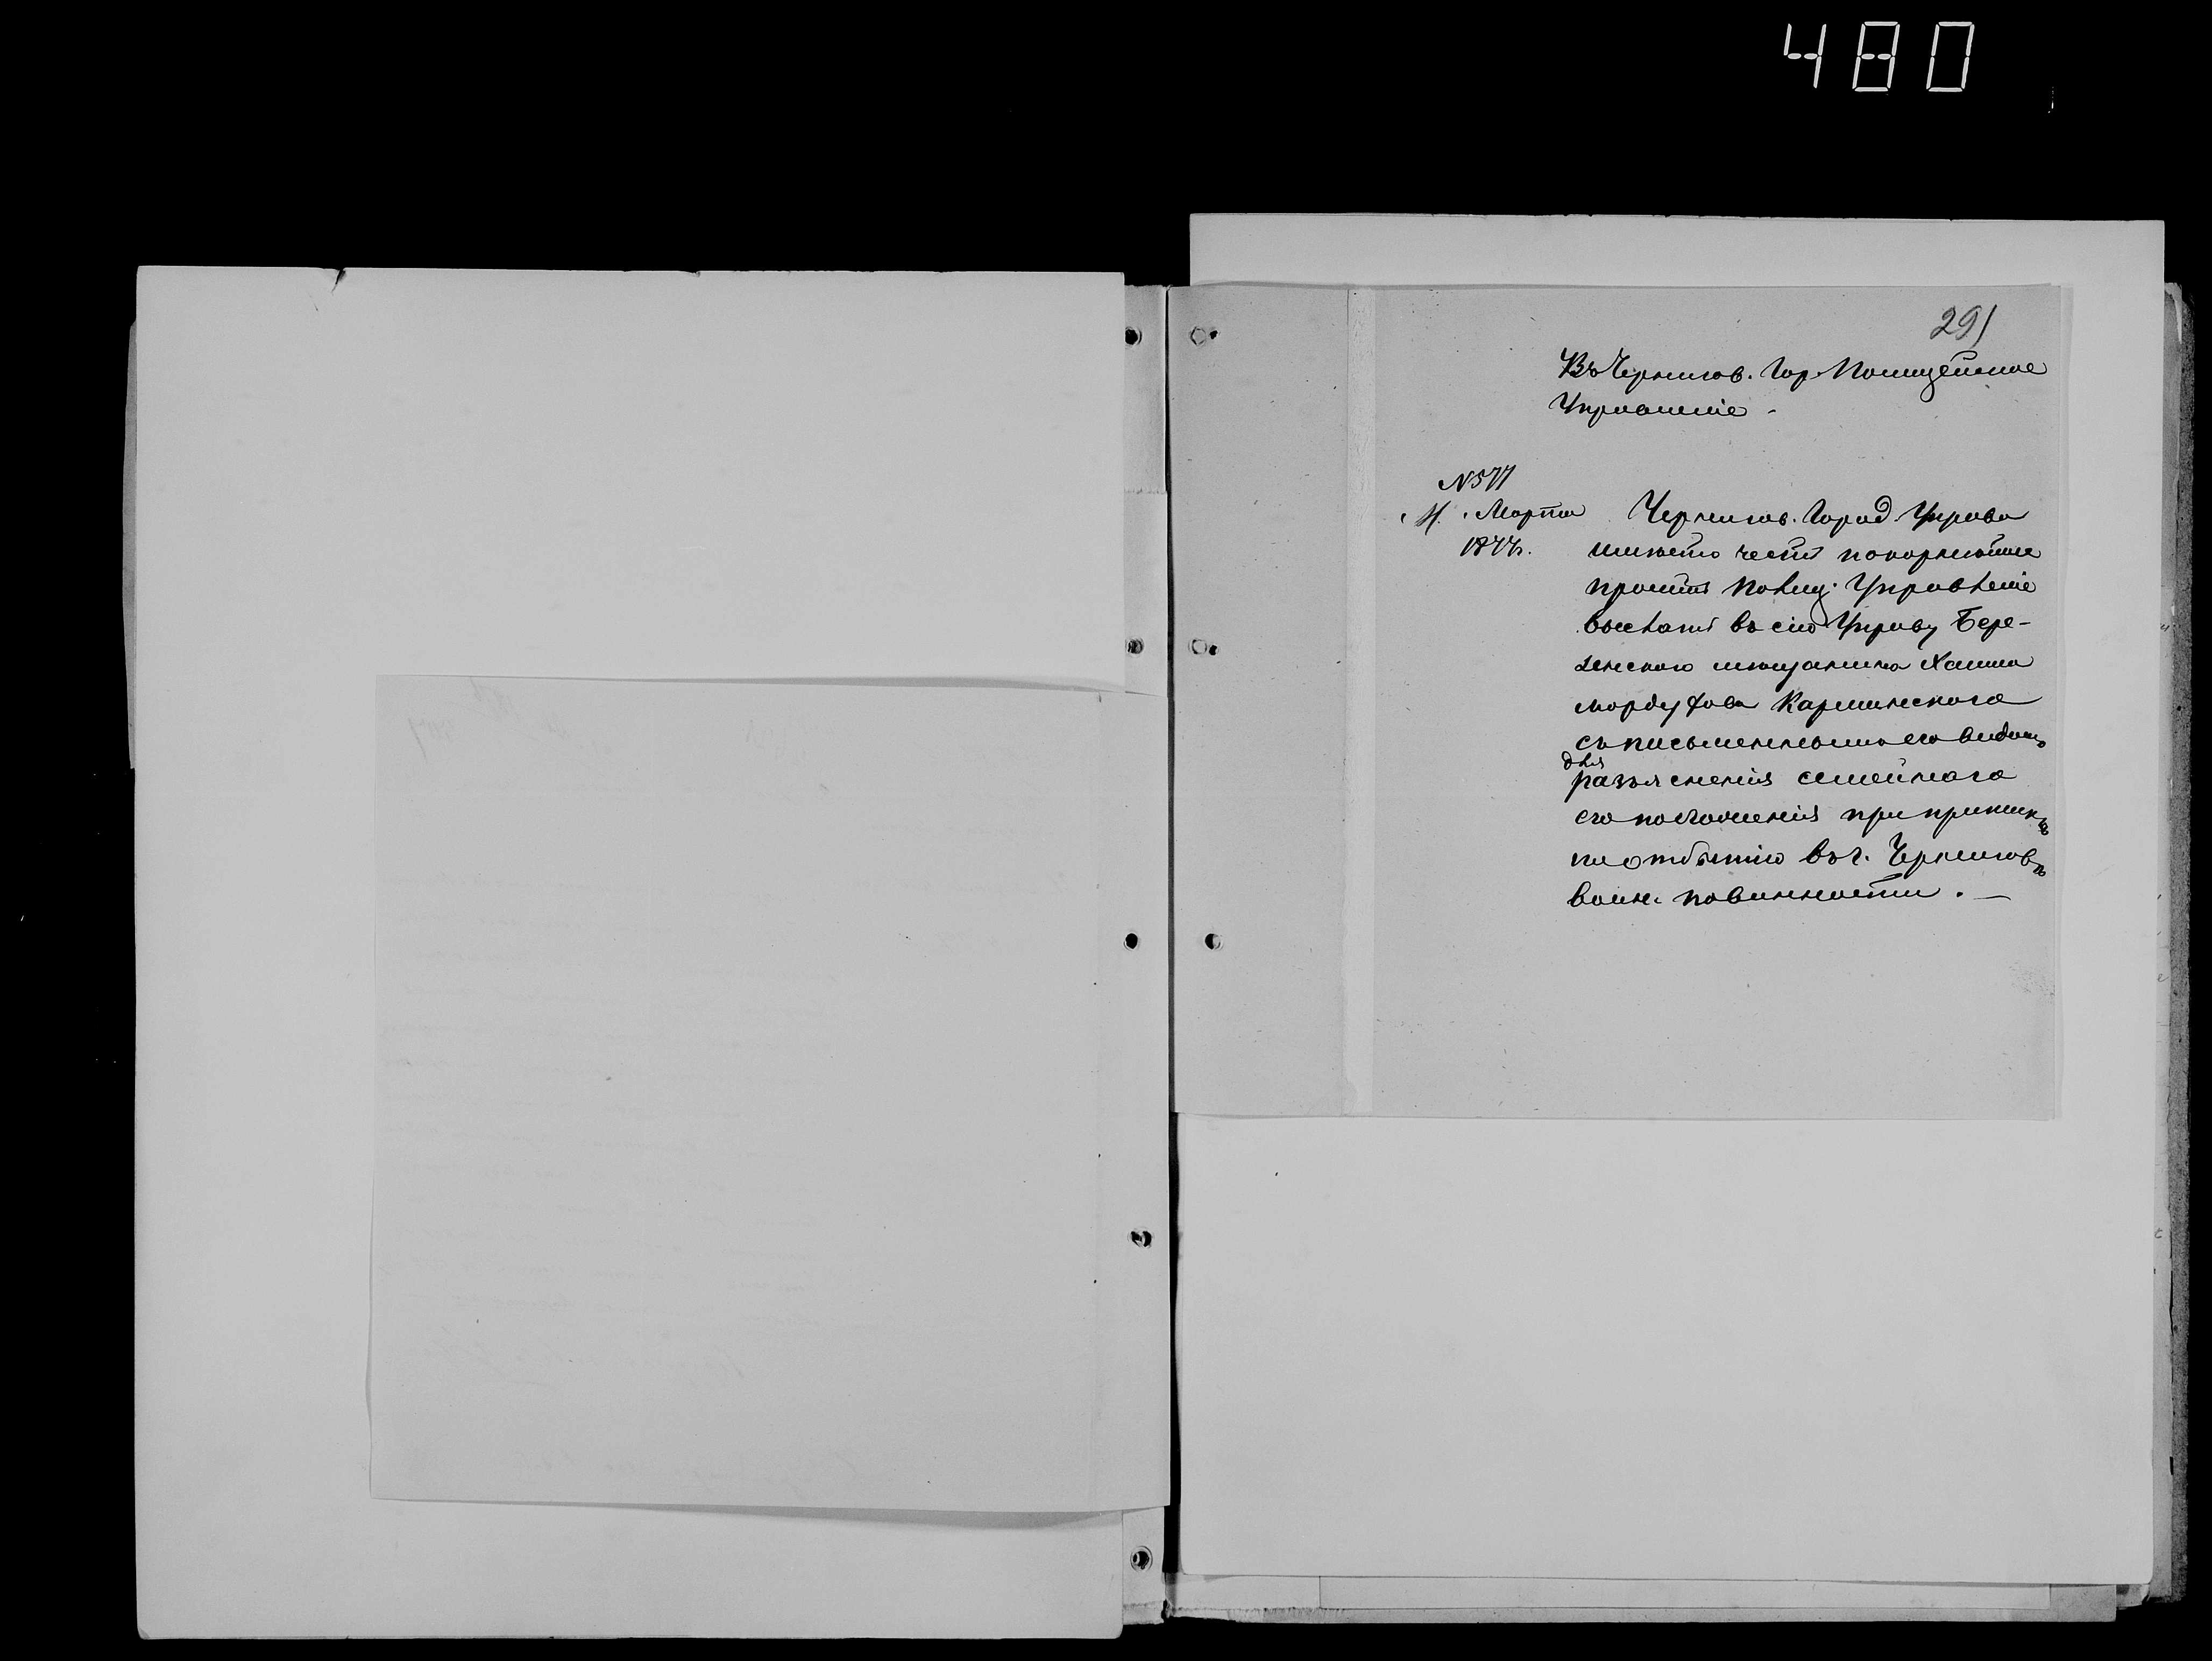 480
291
Въ Чернигов. Гор. Полицейское
Управленіе -
N 577
Марта
1877г.
Чернигов. Город. Управа
имѣетъ честь покорнѣйше
проситъ Полиц. Управленіе
выслать въ сію Управу Бере-
зенскаго мѣщанина Хаима
Мордухова Каршинскаго
съ письменнымъ его видомъ
для
разъясненія семейнаго
его положенія при припискѣ
къ отбытію въ г. Черниговѣ
воин. повинности. —